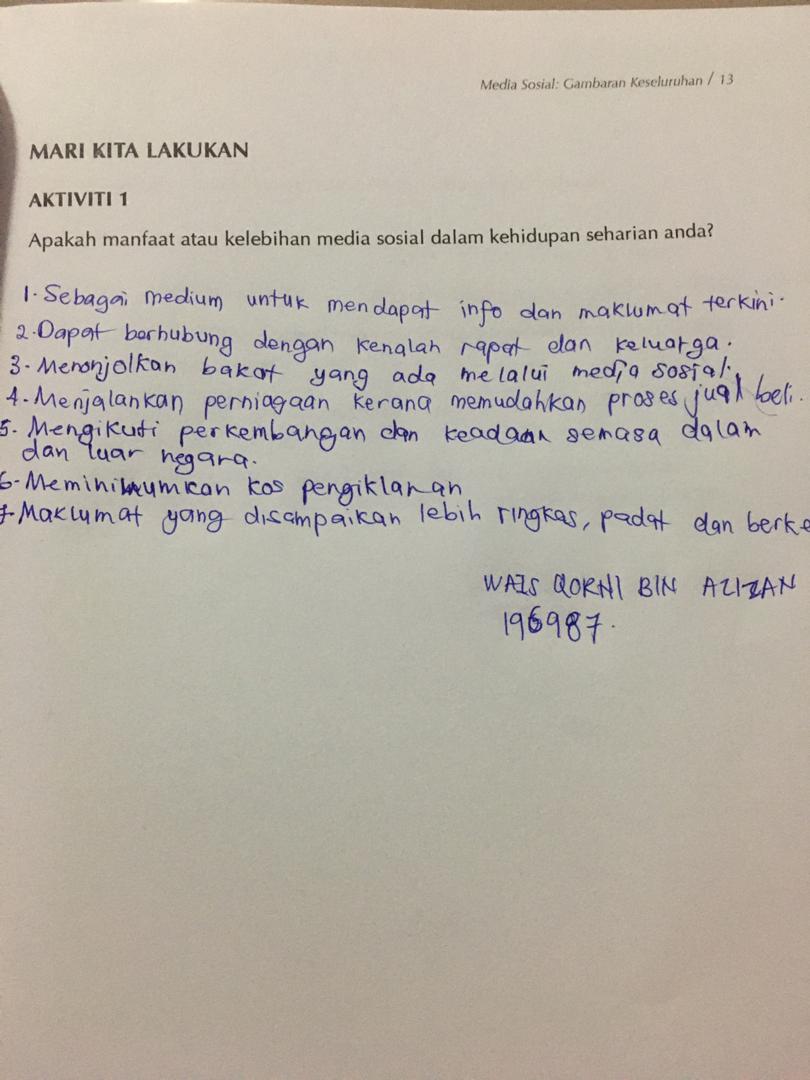 Media Sosial: Gambaran Keseluruhan / 13
MARI KITA LAKUKAN
AKTIVITI 1
Apakah manfaat atau kelebihan media sosial dalam kehidupan seharian anda?
1. Sebagai medium untuk mendapat info dan maklumat terkini.
2. Dapat berhubung dengan kenalan rapat dan keluarga.
3. Menonjolkan bakat yang ada melalui media sosial.
4. Menjalankan perniagaan kerana memudahkan proses jual beli.
5. Mengikuti perkembangan dan keadaan semasa dalam
dan luar negara.
6. Meminimumkan kos pengiklanan
7. Maklumat yang disampaikan lebih ringkas, padat dan
WAIS QORNI BIN AZIZAN
196987.